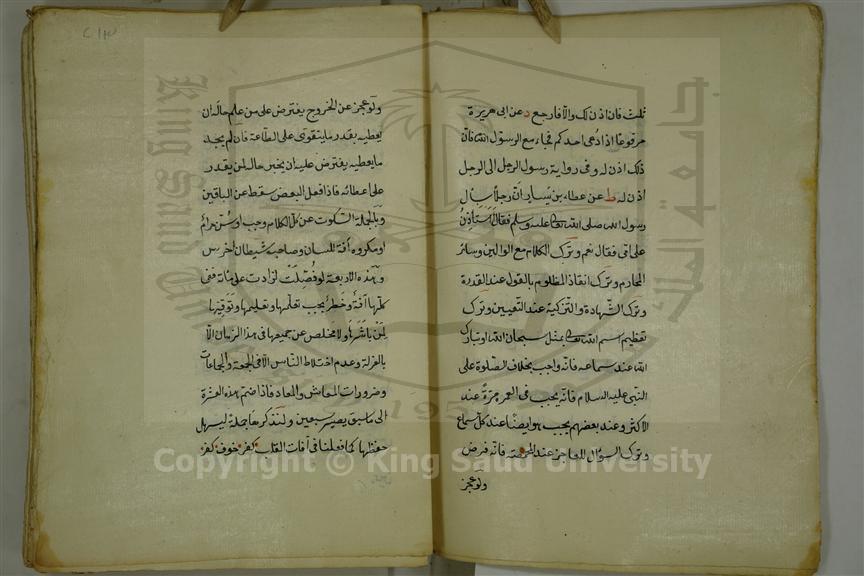 ثلث فان اذن لك والا فارجع د عن ابى هريرة
مرفوعا اذا دعى احدكم فجاء مع الرسول فان
ذلك اذن له وفى رواية رسول الرجل الى الرجل
اذن له ط عن عطاء بن يسار ان رجلا سأل
رسول الله صلى الله تعالى عليه وسلم فقال أستأذن
على امى فقال نعم وترك الكلام مع الوالدين وسائر
المحارم وترك انقاذ المظلوم بالقول عند القدرة
وترك الشهادة والتزكية عند التعيين وترك
تعظيم اسم الله تعالى بمثل سبحان الله او تبارك
الله عند سماعه فانه واجب بخلاف الصلوة على
النبى عليه السلام فانه يجب فى العمر مرة عند
الاكثر وعند بعضهم يجب هو ايضا عند كل سماع
وترك السؤال للعاجز عند المخمصة فانه فرض
ولو عجز
ولو عجز عن الخروج يفترض على من علم حاله ان
يعطيه بقدر ما يتقوى على الطاعة فان لم يجد
ما يعطيه يفترض عليه ان يخبر حاله لمن يقدر
على اعطائه فاذا فعل البعض سقط عن الباقين
وبالجملة السكوت عن كل الكلام وجب او سن حرام
او مكروه آفة للسان وصاحبه شيطان اخرس
وهذه الاربعة لو فصلت لزادت على مائة ففى
كلها آفة وخطر يجب تعلمها وتعليمها وتوقيها
لمن باشرها ولا مخلص عن جميعها فى هذا الزمان الا
بالعزلة وعدم اختلاط الناس الا فى الجمعة والجماعات
وضرورات المعاش والمعاد فاذا ضم هذه العشرة
الى ما سبق يصير سبعين ولنذكرها جملة ليسهل
حفظها كما فعلنا فى آفات القلب كفر خوف كفر
Copyright © King Saud University
King Saud University
جامعة الملك
195